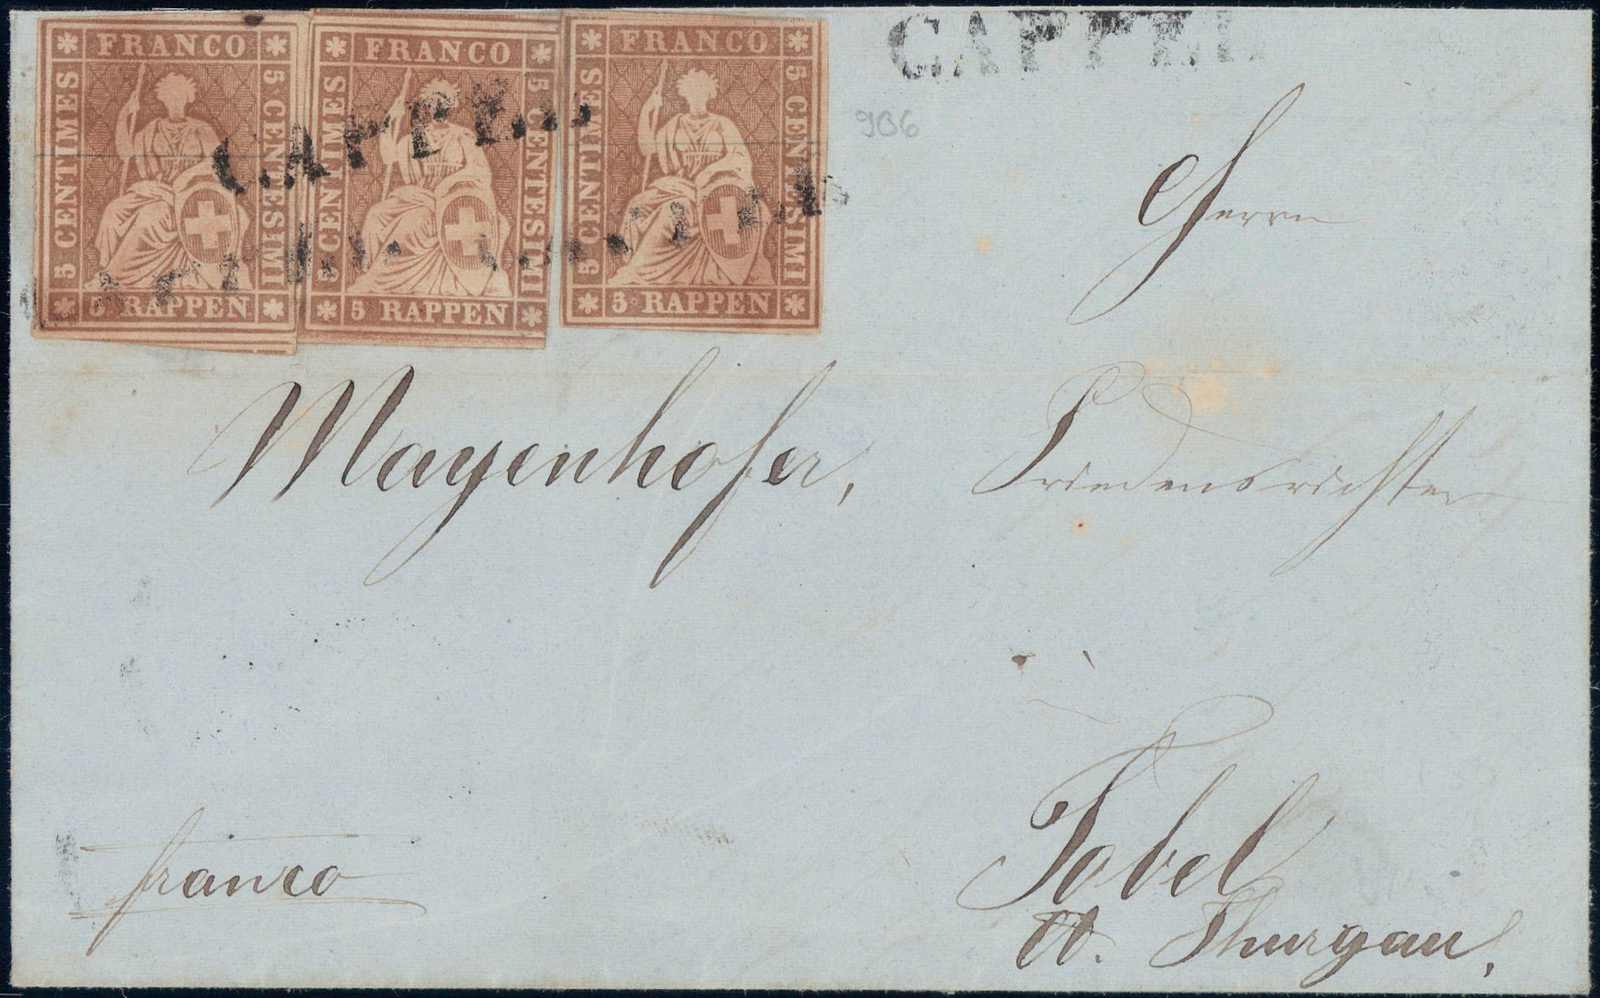 FRANCO
5 CENTIMES
5 CENTESIMI
5 RAPPEN
FRANCO
5 CENTIMES
5 CENTESIMI
5 RAPPEN
FRANCO
5 CENTIMES
5 CENTESIMI
5 RAPPEN
CAPPEL
CAPPEL
CAPPEL
CAPPEL
906
Herrn
Mayenhofer, Friedensrichter
Tobel
Ct. Thurgau,
franco